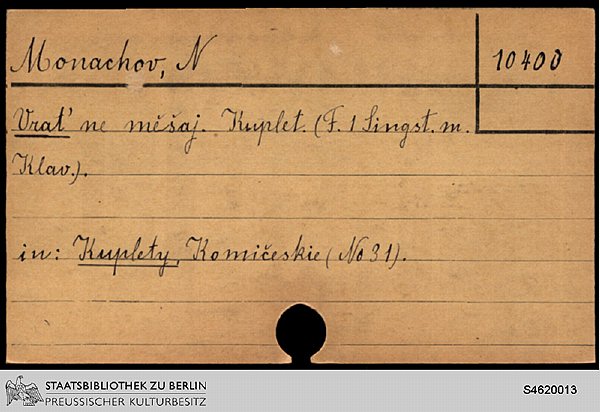 Monachov, N
10400
Vrat' ne měšaj. Kuplet. (F. 1 Singst. m.
Klav.).
in: Kuplety, Komičeskie (No 31).
STAATSBIBLIOTHEK ZU BERLIN
PREUSSISCHER KULTURBESITZ
S4620013